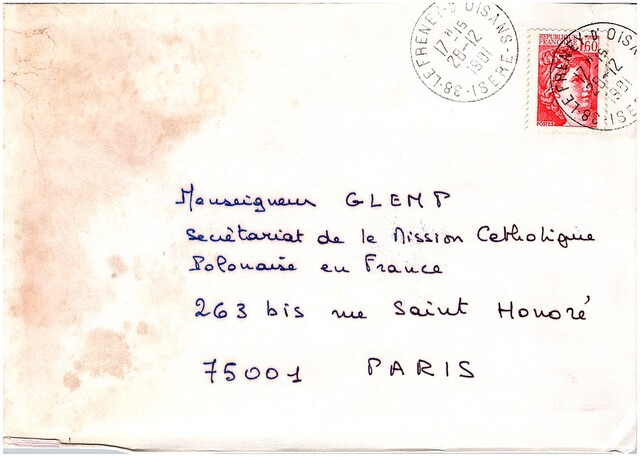 38-LE FRENEY-D'OISANS-ISERE
17H15
28-12
1981
REPUBLIQUE
FRANÇAISE
1,60
38-LE FRENEY-D'OISANS-ISERE
17H15
28-12
1981
Monseigneur GLEMP
Secrètariat de la Mission Catholique
Polonaise en France
263 bis rue Saint Honoré
75001 PARIS